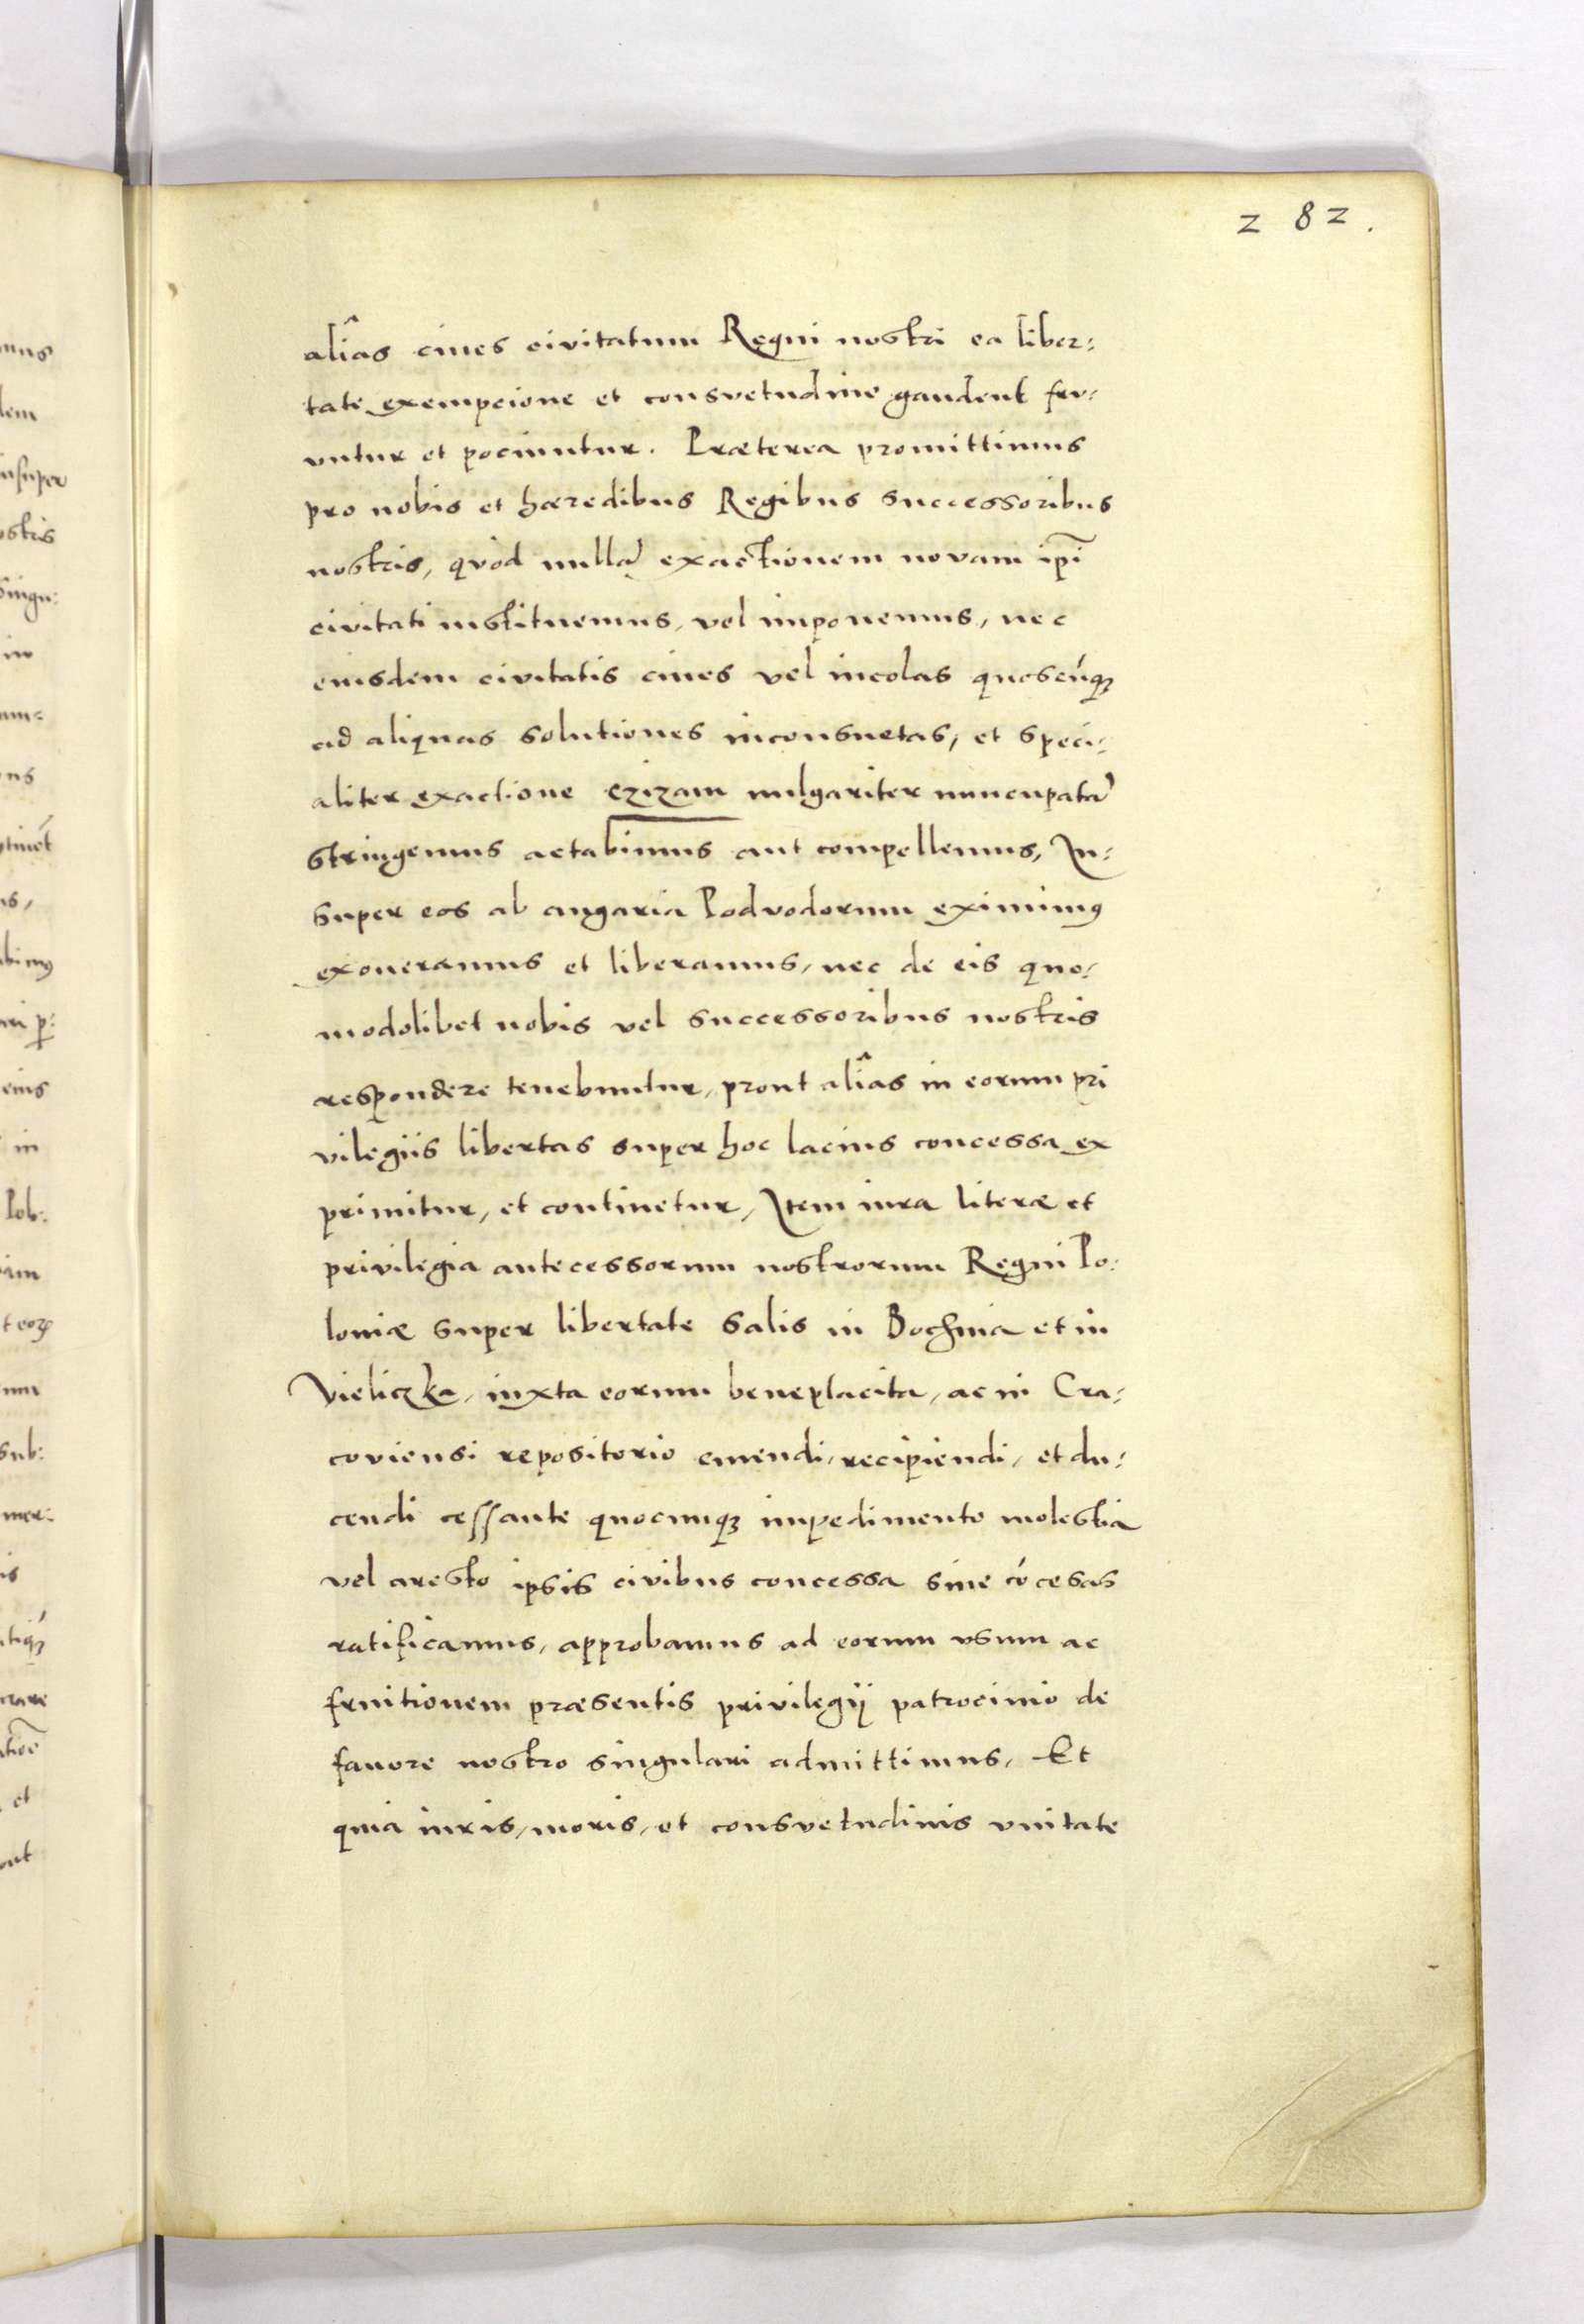 282.
aliâs ciues civitatum Regni nostri ea liber:
tate exempcione et consvetudine gaudent fru:
untur et pociuntur. Præterea promittimus
pro nobis et hæredibus Regibus successoribus
nostris, qvod nullã exactionem novam ip̃i
civitati instituemus, vel imponemus, nec
eiusdem civitatis ciues vel incolas quoscúq;
ad aliquas solutiones inconsuetas, et speci:
aliter exactione czizam uulgariter nuncupatã
stringemus actabimus aut compellemus, In:
super eos ab angaria Podvodorum eximimus
exoneramus et liberamus, nec de eis quo:
modolibet nobis vel successoribus nostris
respondere tenebuntur, prout aliâs in eorum pri
vilegiis libertas super hoc lacius concessa ex
primitur, et continetur, Item iura literæ et
privilegia antecessorum nostrorum Regni Po:
loniæ super libertate salis in Bochnia et in
Vieliczka, iuxta eorum beneplacita, ac in Cra:
coviensi repositorio emendi, recipiendi, et du:
cendi cessante quocunq; impedimento molestia
vel aresto ipsis civibus concessa sine cócesas
ratificamus, approbamus ad eorum vsum ac
fruitionem præsentis privilegij patrocinio de
fauore nostro singulari admittimus, Et
quia iuris, moris, et consvetudinis vnitate